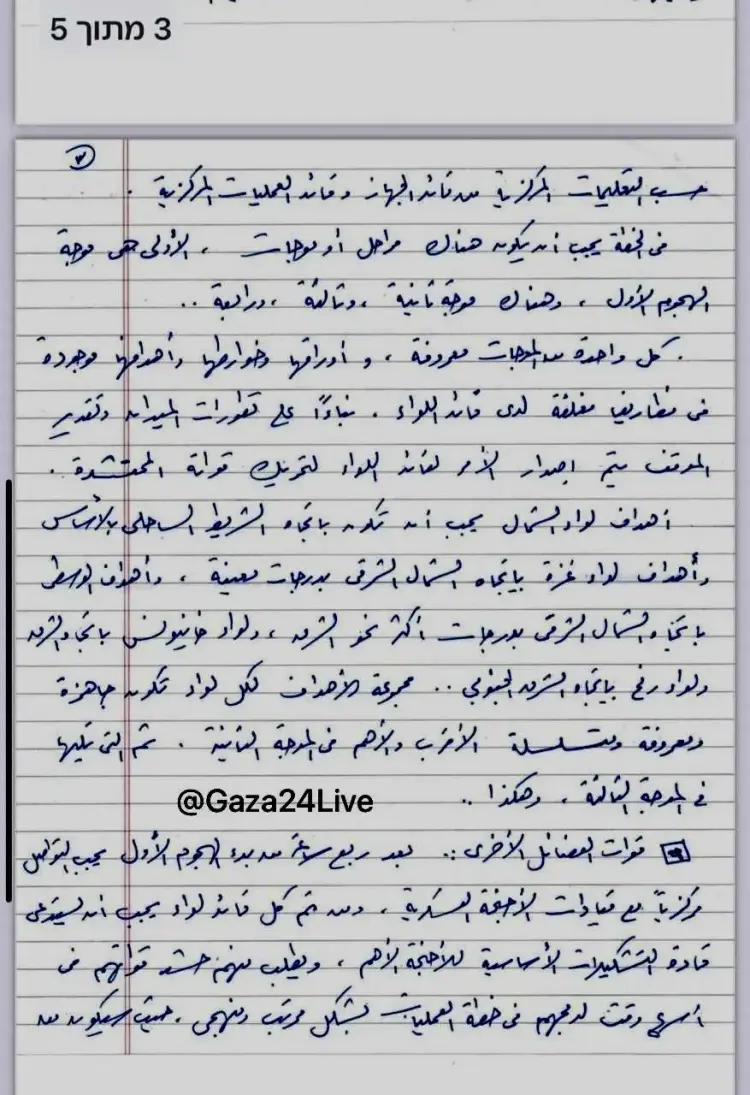 3 מתוך 5
٣
حسب التعليمات المركزية من قائد الجهاز وقائد العمليات المركزية .
في الخطة يجب أن يكون هناك مراحل أو موجات ، الأولى هي موجة
الهجوم الأول ، وهناك موجة ثانية ، وثالثة ، ورابعة ..
. كل واحدة من الموجات معروفة ، و أوراقها وخوارطها وأهدافها موجودة
في مظاريف مغلقة لدى قائد اللواء . بناءًا على تطورات الميدان وتقدير
الموقف يتم إصدار الأمر لقائد اللواء لتحريك قواته المحتشدة .
أهداف لواء الشمال يجب أن تكون باتجاه الشريط الساحلي بالأساس
وأهداف لواء غزة باتجاه الشمال الشرقي بدرجات معينة ، وأهداف الوسطى
باتجاه الشمال الشرقي بدرجات أكثر نحو الشرق ، ولواء خانيونس باتجاه الشرق
ولواء رفح باتجاه الشرق الجنوبي .. مجموعة الأهداف لكل لواء تكون جاهزة
ومعروفة ومتسلسلة الأقرب والأهم في الموجة الثانية . ثم التي تليها
في الموجة الثالثة . وهكذا ..
@Gaza24Live
قوات الفصائل الأخرى :. بعد ربع ساعة من بدء الهجوم الأول يجب التواصل
مركزياً مع قيادات الأجنحة العسكرية ، ومن ثم كل قائد لواء يجب أن يستدعي
قادة التشكيلات الأساسية للأجنحة الأهم ، ويطلب منهم حشد قواتهم في
أسرع وقت لدمجهم في خطة العمليات بشكل مرتب ومنهجي . حيث سيكون من